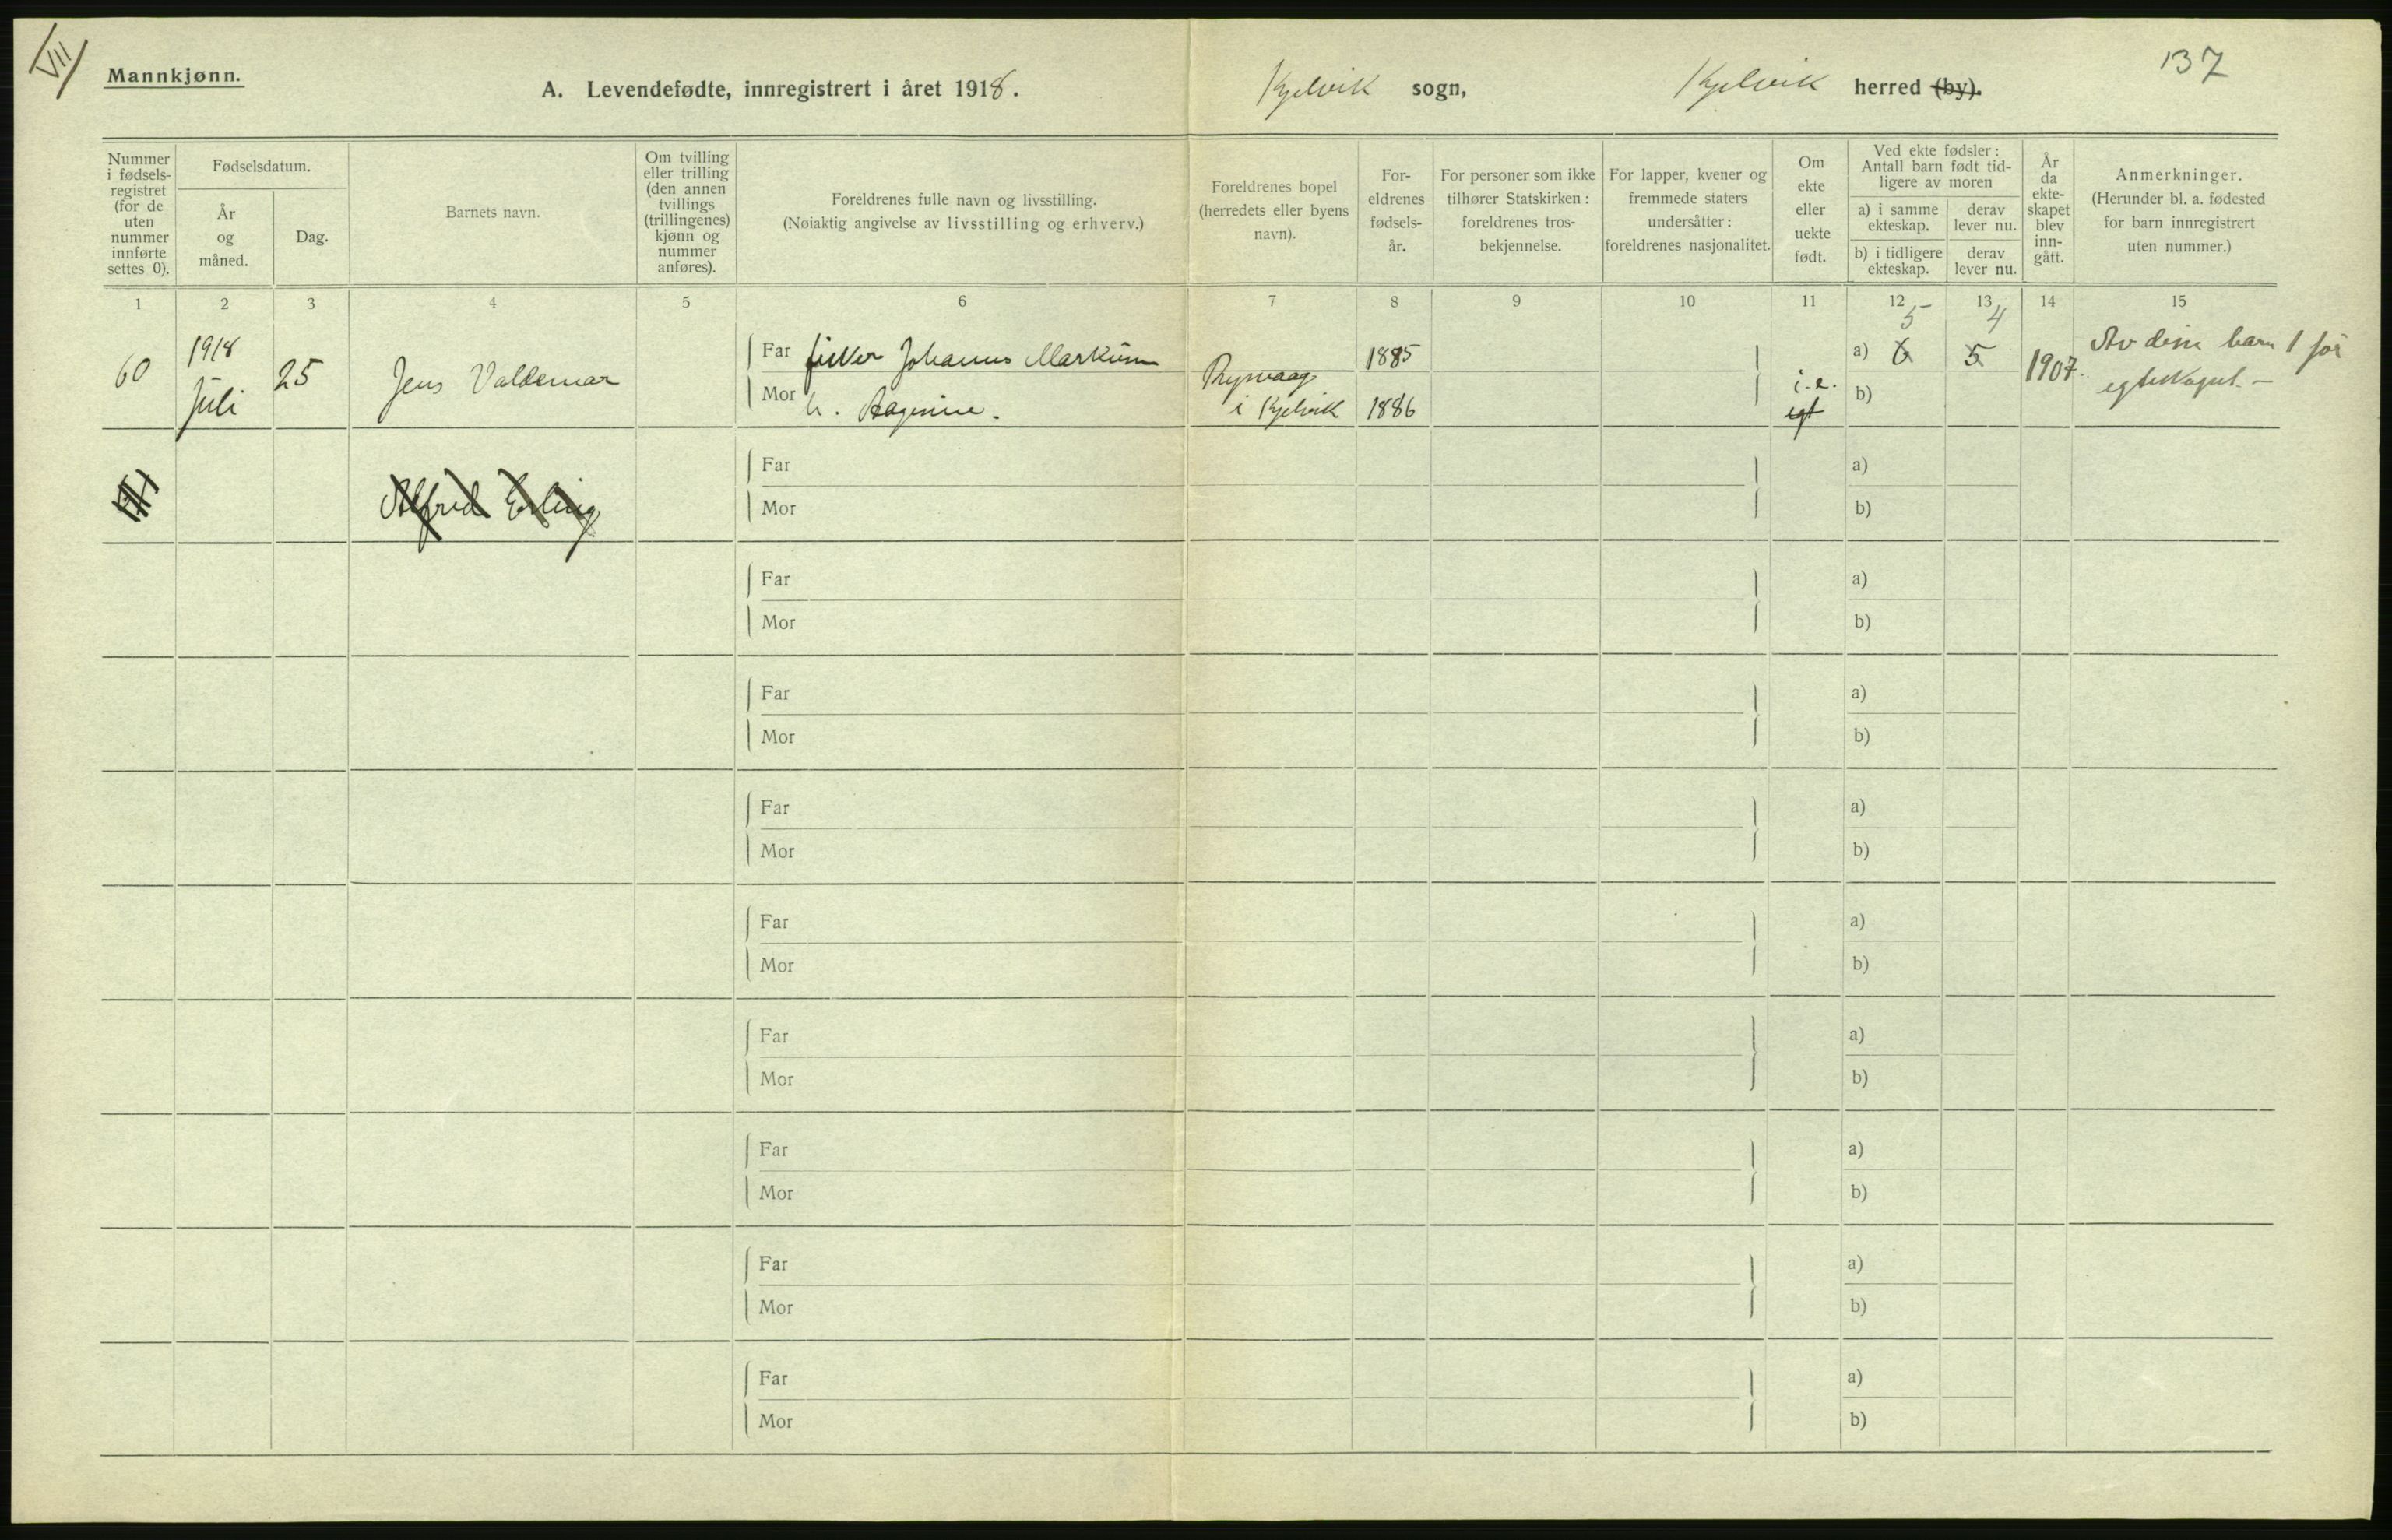 VII
Mannkjønn.
A. Levendefødte, innregistrert i året 1918.
Kjelvik sogn,
Kjelvik herred (by).
137
Nummer
i fødsels-
registret
(for de
uten
nummer
innførte
settes 0).
Fødselsdatum.
År
og
måned.
Dag.
Barnets navn.
Om tvilling
eller trilling
(den annen
tvillings
(trillingenes)
kjønn og
nummer
anføres).
Foreldrenes fulle navn og livsstilling.
(Nøiaktig angivelse av livsstilling og erhverv.)
Foreldrenes bopel
(herredets eller byens
navn).
For-
eldrenes
fødsels-
år.
For personer som ikke
tilhører Statskirken:
foreldrenes tros-
bekjennelse.
For lapper, kvener og
fremmede staters
undersåtter:
foreldrenes nasjonalitet.
Om
ekte
eller
uekte
født.
Ved ekte fødsler:
Antall barn født tid-
ligere av moren
a) i samme
ekteskap.
derav
lever nu.
b) i tidligere
ekteskap.
derav
lever nu.
År
da
ekte-
skapet
blev
inn-
gått.
Anmerkninger.
(Herunder bl. a. fødested
for barn innregistrert
uten nummer.)
1 2 3 4 5 6 7 8 9 10 11 12 13 14 15
60
1918
Juli
25
Jens Valdemar
Far fisker Johannes
Mor h.
i Kjelvik
1885
1886
i.e.
egt
5
a) 6
b)
4
5
1907.
Av disse barn 1 før
egteskapet. –
Alfred Erling
Far
Mor
a)
b)
Far
Mor
a)
b)
Far
Mor
a)
b)
Far
Mor
a)
b)
Far
Mor
a)
b)
Far
Mor
a)
b)
Far
Mor
a)
b)
Far
Mor
a)
b)
Far
Mor
a)
b)